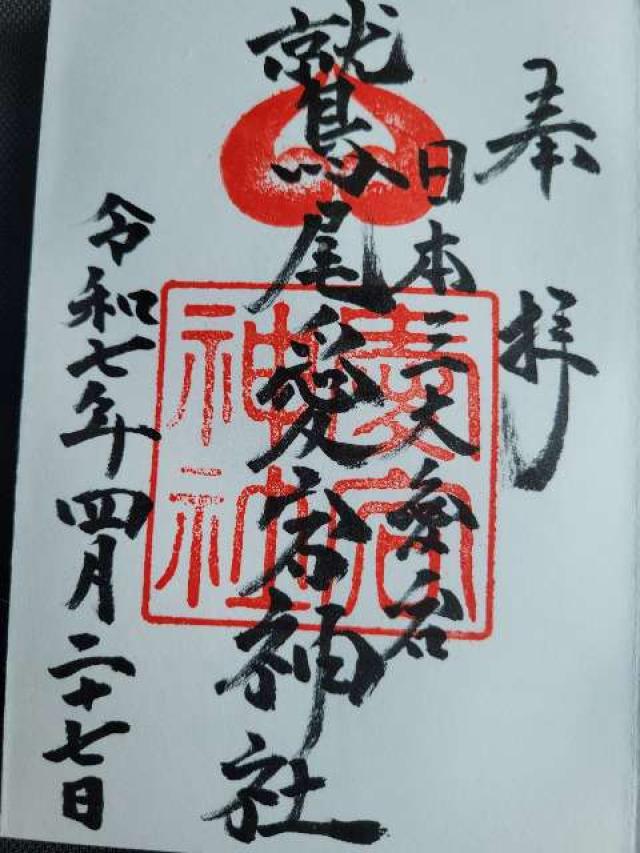 奉拝
日本三大愛宕
鷲尾愛宕神社
愛宕
神社
令和七年四月二十七日